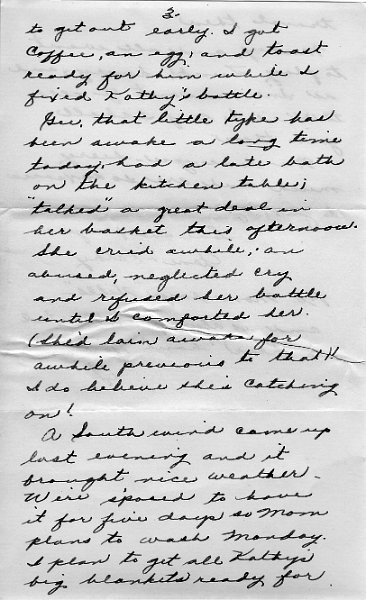 3.
to get out early. I got
coffee, an egg, and toast
ready for him while I
fixed Kathy's bottle.
Gee, that little tyke has
been awake a long time
today, had a late bath
on the kitchen table;
"talked" a great deal in
her basket this afternoon.
She cried awhile, an
abused, neglected cry
and refused her bottle
until I comforted her.
(She'd lain awake for
awhile previous to that!!
I do believe she's catching
on!
A South wind came up
last evening and it
brought nice weather.
We're sposed to have
it for five days so Mom
plans to wash Monday.
I plan to get all Kathy's
big blankets ready for